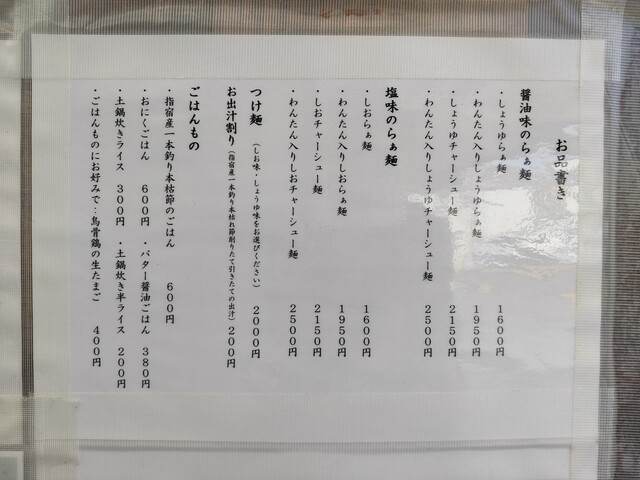 お品書き
醤油味のらぁ麺
・しょうゆらぁ麺 1600円
・わんたん入りしょうゆらぁ麺 1950円
・しょうゆチャーシュー麺 2150円
・わんたん入りしょうゆチャーシュー麺 2500円
塩味のらぁ麺
・しおらぁ麺 1600円
・わんたん入りしおらぁ麺 1950円
・しおチャーシュー麺 2150円
・わんたん入りしおチャーシュー麺 2500円
つけ麺 (しお味・しょうゆ味をお選びください) 2000円
お出汁割り(指宿産一本釣り本枯れ節削りたて引きたての出汁) 200円
ごはんもの
・指宿産一本釣り本枯節のごはん 600円
・おにくごはん 600円 ・バター醤油ごはん 380円
・土鍋炊きライス 300円 ・土鍋炊き半ライス 200円
・ごはんものにお好みで：烏骨鶏の生たまご 400円